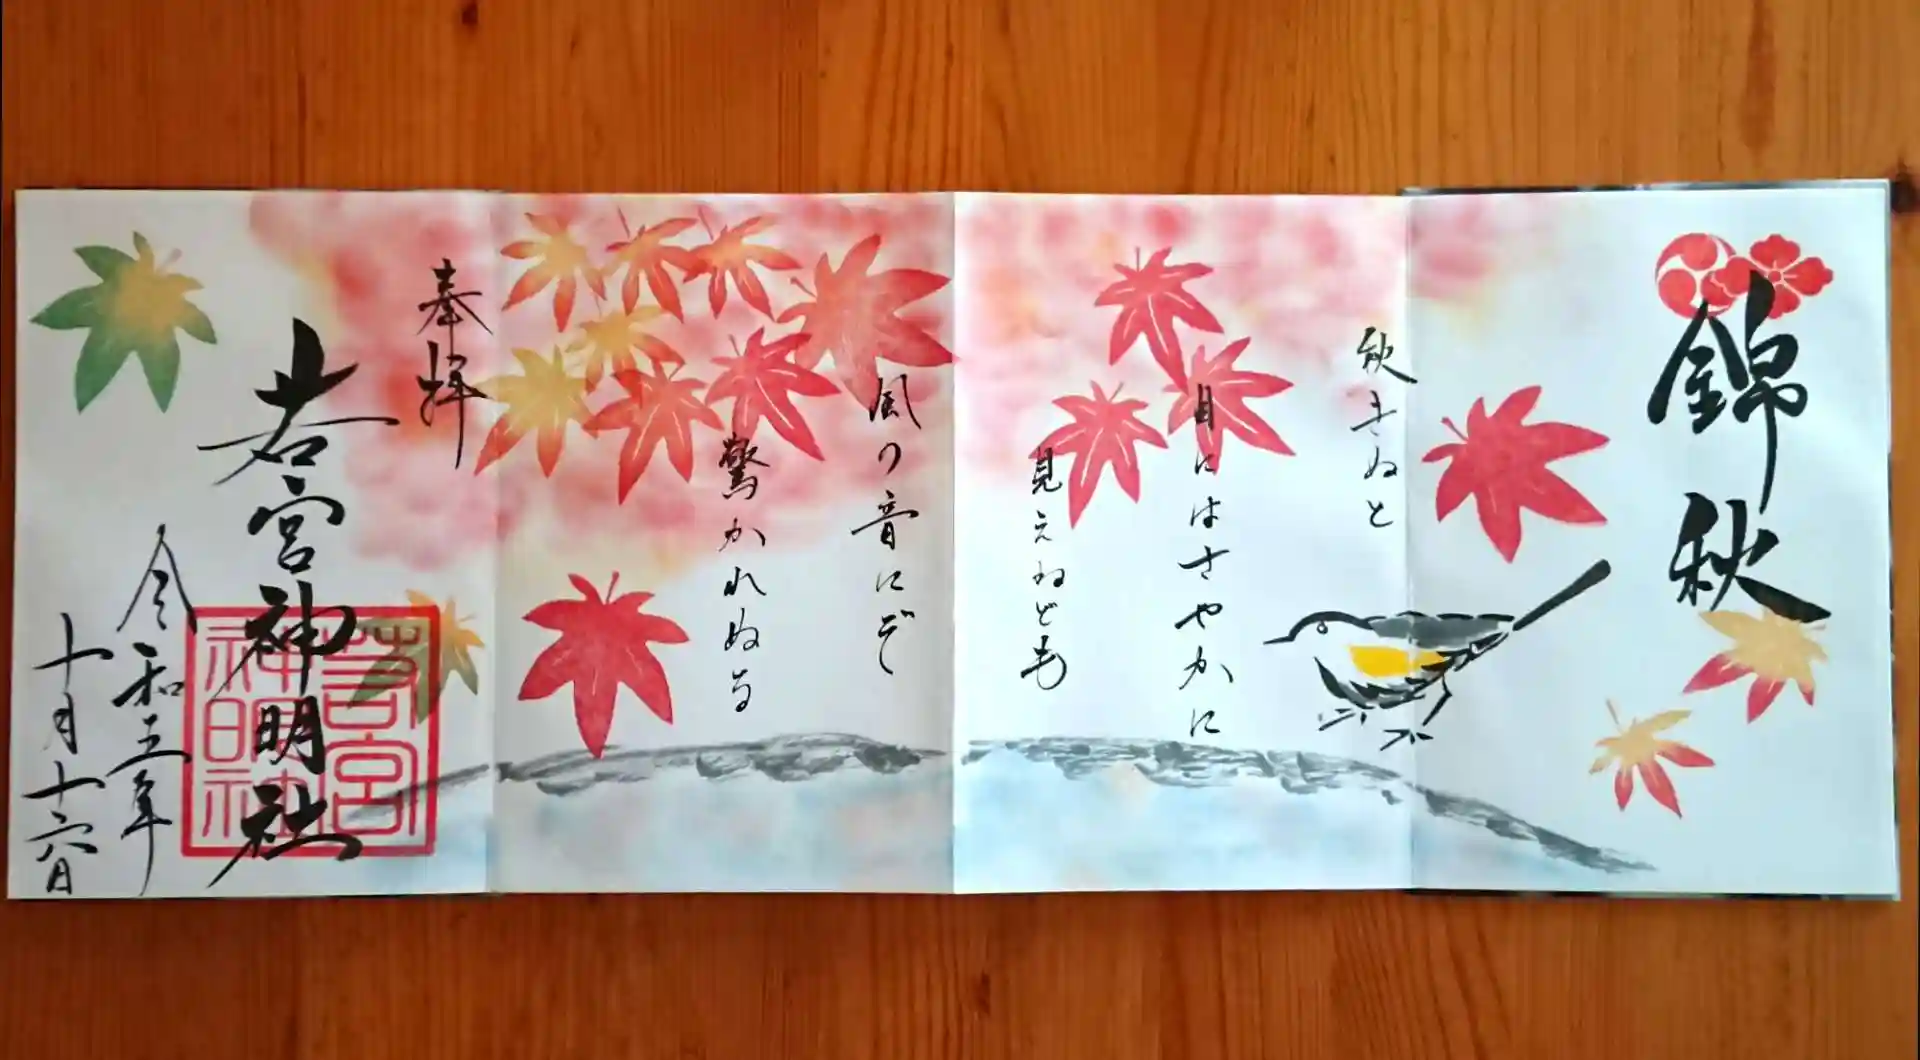 錦秋
秋きぬと
目にはさやかに
見えねども
風の音にぞ
驚かれぬる
奉拝
若宮神明社
若宮
神明社
令和三年
十月十六日